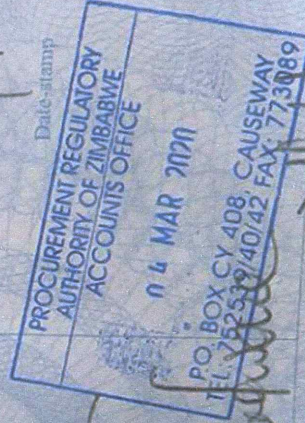 Date-stamp
PROCUREMENT REGULATORY
AUTHORITY OF ZIMBABWE
ACCOUNTS OFFICE
04 MAR 2020
P.O. BOX CY 408, CAUSEWAY
TEL. 752539/40/42 FAX. 773089